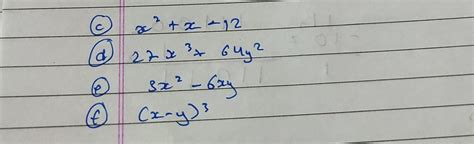 (c) x² + x - 12
(d) 27x³ + 64y²
(e) 3x² - 6xy
(f) (x-y)³